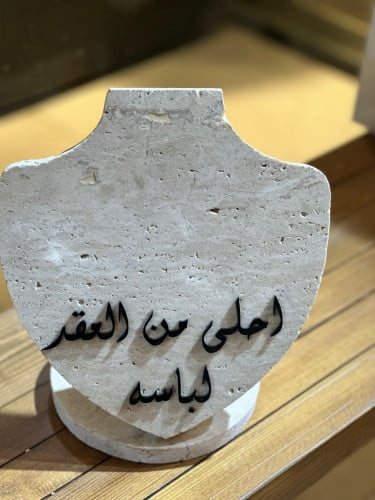 احلى من العقد
لباسه